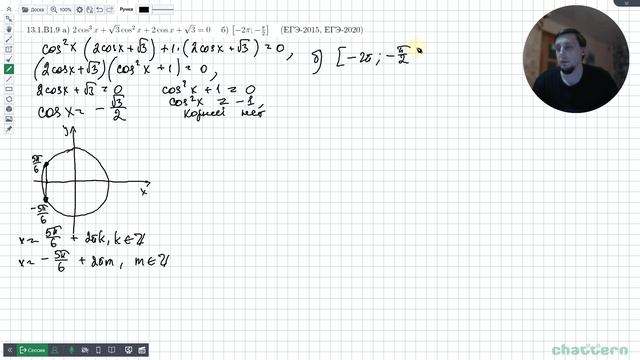 Доска
13.1.B1.9 a) 2 cos³ x + √3 cos² x + 2 cos x + √3 = 0 б) [−2π; −π/2] (ЕГЭ-2015, ЕГЭ-2020)
cos²x (2cosx + √3) + 1·(2cosx + √3) = 0,
б) [−2π; −π/2
(2cosx + √3)(cos²x + 1) = 0,
2cosx + √3 = 0 cos²x + 1 = 0
cosx = −√3/2 cos²x = −1,
корней нет
y
5π/6
x
−5π/6
x = 5π/6 + 2πk, k ∈ ℤ
x = −5π/6 + 2πm, m ∈ ℤ
Сессия
chattern